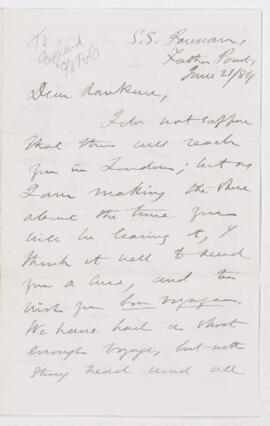 S.S. Parisian,
Father Point,
June 21/84
Dear Rankine,
I do not suppose
that this will reach
you in London; but as
I am making the shore
about the time you
will be leaving it, I
think it well to send
you a line, and to
wish you bon voyage.
We have had a short
enough voyage, but with
strong head wind all